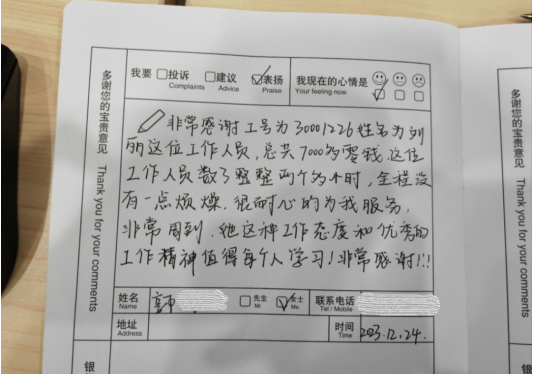 我要 投诉 建议 表扬 我现在的心情是
Complaints Advice Praise Your feeling now
非常感谢工号为30001226姓名为刘
丽这位工作人员,总共7000多零钱.这位
工作人员数了整整两个多小时,全程没
有一点烦燥.很耐心的为我服务.
非常周到.她这种工作态度和优秀的
工作精神值得每个人学习!非常感谢!!!
多谢您的宝贵意见 Thank you for your comments
多谢您的宝贵意见 Thank you for your comments
姓名 先生 女士 联系电话
Name Mr Ms. Tel / Mobile
地址 时间 2023.12.24.
Address Time
银
银